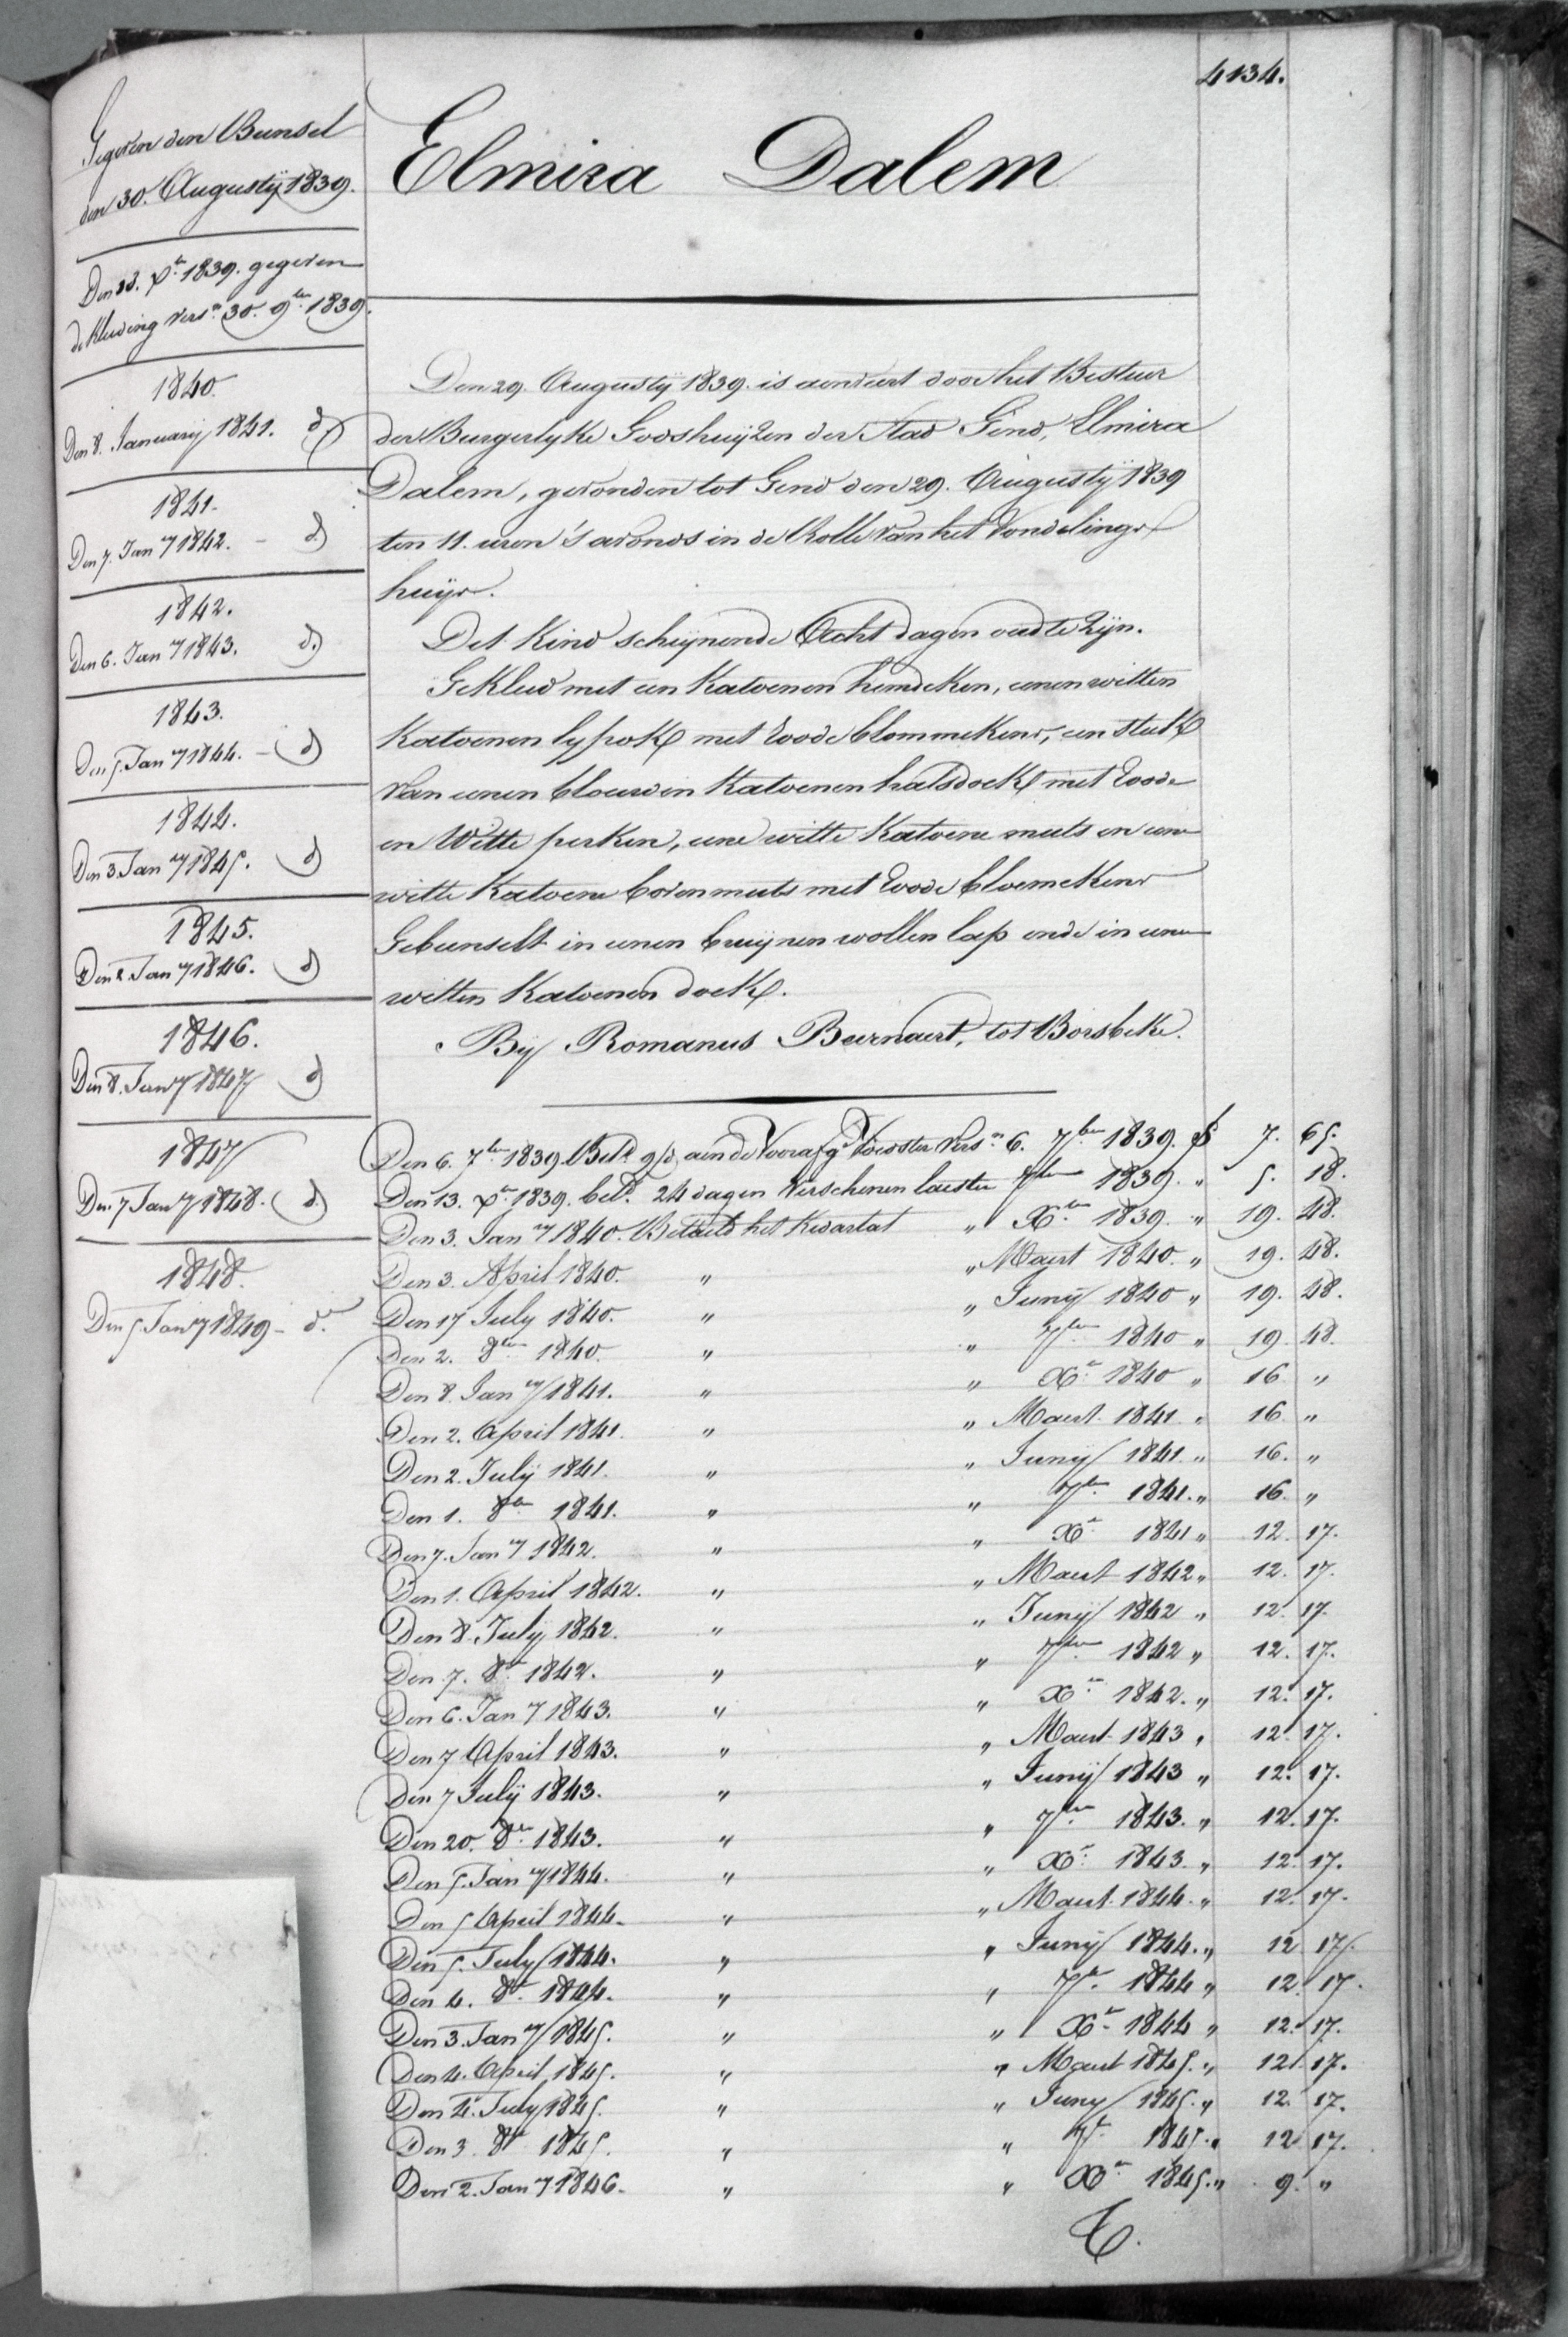 4134.
Elmira Dalem
Gegeven den Bunsel
den 30. Augustij 1839.
Den 13. Xbr 1839. gegeven
de kleeding versn 30. 9ber 1839.
1840.
Den 8. January 1841. d)
1841.
Den 7. Janry 1842. - d)
1842.
Den 6. Janry 1843. d)
1843.
Den 5. Janry 1844. - d)
1844.
Den 3. Janry 1845. d)
1845.
Den 2. Janry 1846. d)
1846.
Den 8. Janry 1847 d)
1847
Den 7 Janry 1848. d)
1848.
Den 5. Janry 1849 - do
Den 29. Augustij 1839. is aenveert door het Bestuer
der Burgerlyke Godshuijzen der Stad Gend, Elmira
Dalem, gevonden tot Gend den 29. Augustij 1839
ten 11. uren 's avonds in de Rolle van het Vondelings
huijs.
Det Kind schijnende Acht dagen oud te Zijn.
Gekleed met een Katoenen hemdeken, eenen witten
Katoenen lyfrok met roode blommekens, een stuk
van eenen blouwen Katoenen halsdoek met roode
en Witte perken, eene witte Katoene muts en eene
witte Katoene bovenmuts met roode bloemekens
Gebunselt in eenen bruijnen wollen lap ende in eenen
witten Katoenen doek.
Bij Romanus Beernaert, tot Borsbeke.
Den 6. 7ber 1839. Betd 9/d aen de Voorafgde Voedster Versn 6. 7ber 1839. f 7. 65.
Den 13. Xbr 1839. betd 24 dagen Verschenen laesten 7ber 1839. " 5. 18.
Den 3. Janry 1840. Betaeld het Kwartael " Xber 1839. " 19. 48.
Den 3. April 1840. " " Maert 1840. " 19. 48.
Den 17 July 1840. " " Junij 1840 " 19. 48.
Den 2. 8ber 1840. " " 7ber 1840 " 19. 48.
Den 8. Janry 1841. " " Xbr 1840 " 16. "
Den 2. April 1841. " " Maert 1841. " 16. "
Den 2. Julij 1841. " " Junij 1841. " 16. "
Den 1. 8ber 1841. " " 7ber 1841. " 16. "
Den 7. Janry 1842. " " Xbr 1841 " 12. 17.
Den 1. April 1842. " " Maert 1842 " 12. 17.
Den 8. July 1842. " " Junij 1842 " 12. 17.
Den 7. 8br 1842. " " 7ber 1842 " 12. 17.
Den 6. Janry 1843. " " Xbr 1842. " 12. 17.
Den 7 April 1843. " " Maert 1843 " 12. 17.
Den 7 Julij 1843. " " Junij 1843 " 12. 17.
Den 20. 8br 1843. " " 7ber 1843. " 12. 17.
Den 5. Janry 1844. " " Xbr 1843. " 12. 17.
Den 5 April 1844. " " Maert 1844. " 12. 17.
Den 5. July 1844. " " Junij 1844. " 12 17.
Den 4. 8br 1844. " " 7br 1844 " 12. 17.
Den 3. Janry 1845. " " Xbr 1844 " 12. 17.
Den 4. April 1845. " " Maert 1845. " 12. 17.
Den 4. July 1845. " " Juny 1845. " 12. 17.
Den 3. 8br 1845. " " 7br 1845. " 12 17.
Den 2. Janry 1846. " " Xbr 1845. " 9. "
T.